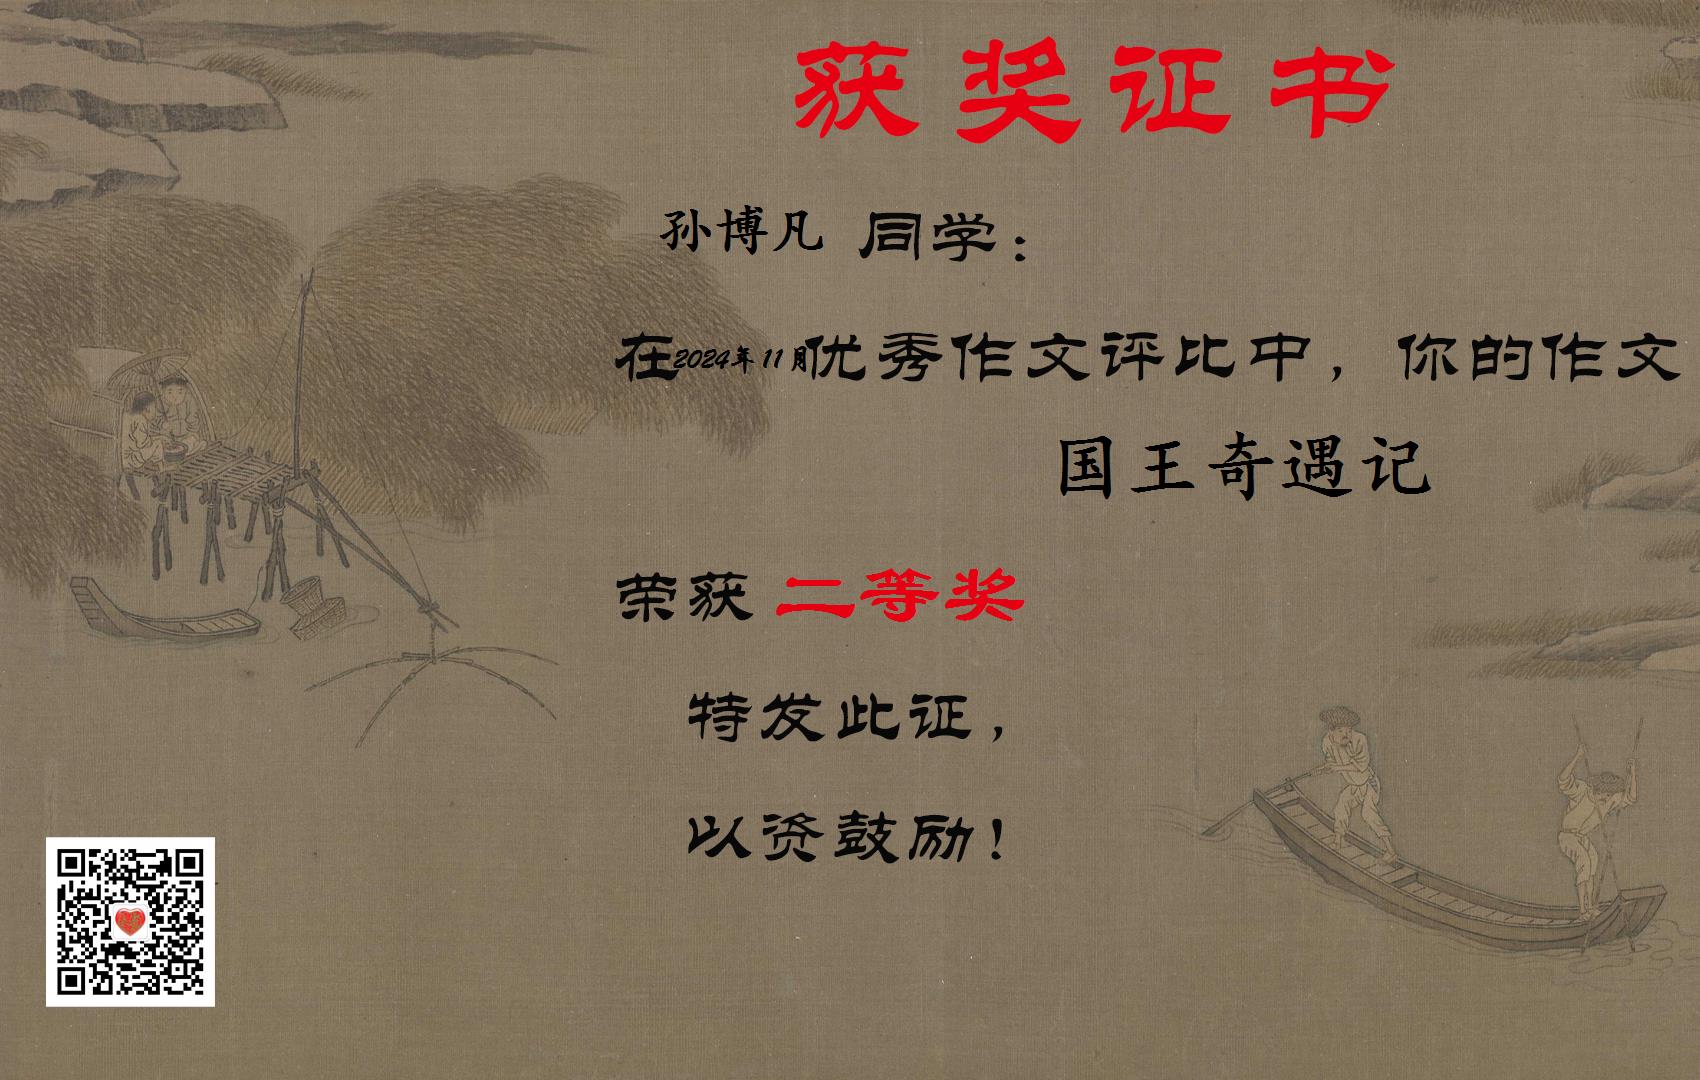 获奖证书
孙博凡 同学：
在2024年11月优秀作文评比中，你的作文
国王奇遇记
荣获 二等奖
特发此证，
以资鼓励！